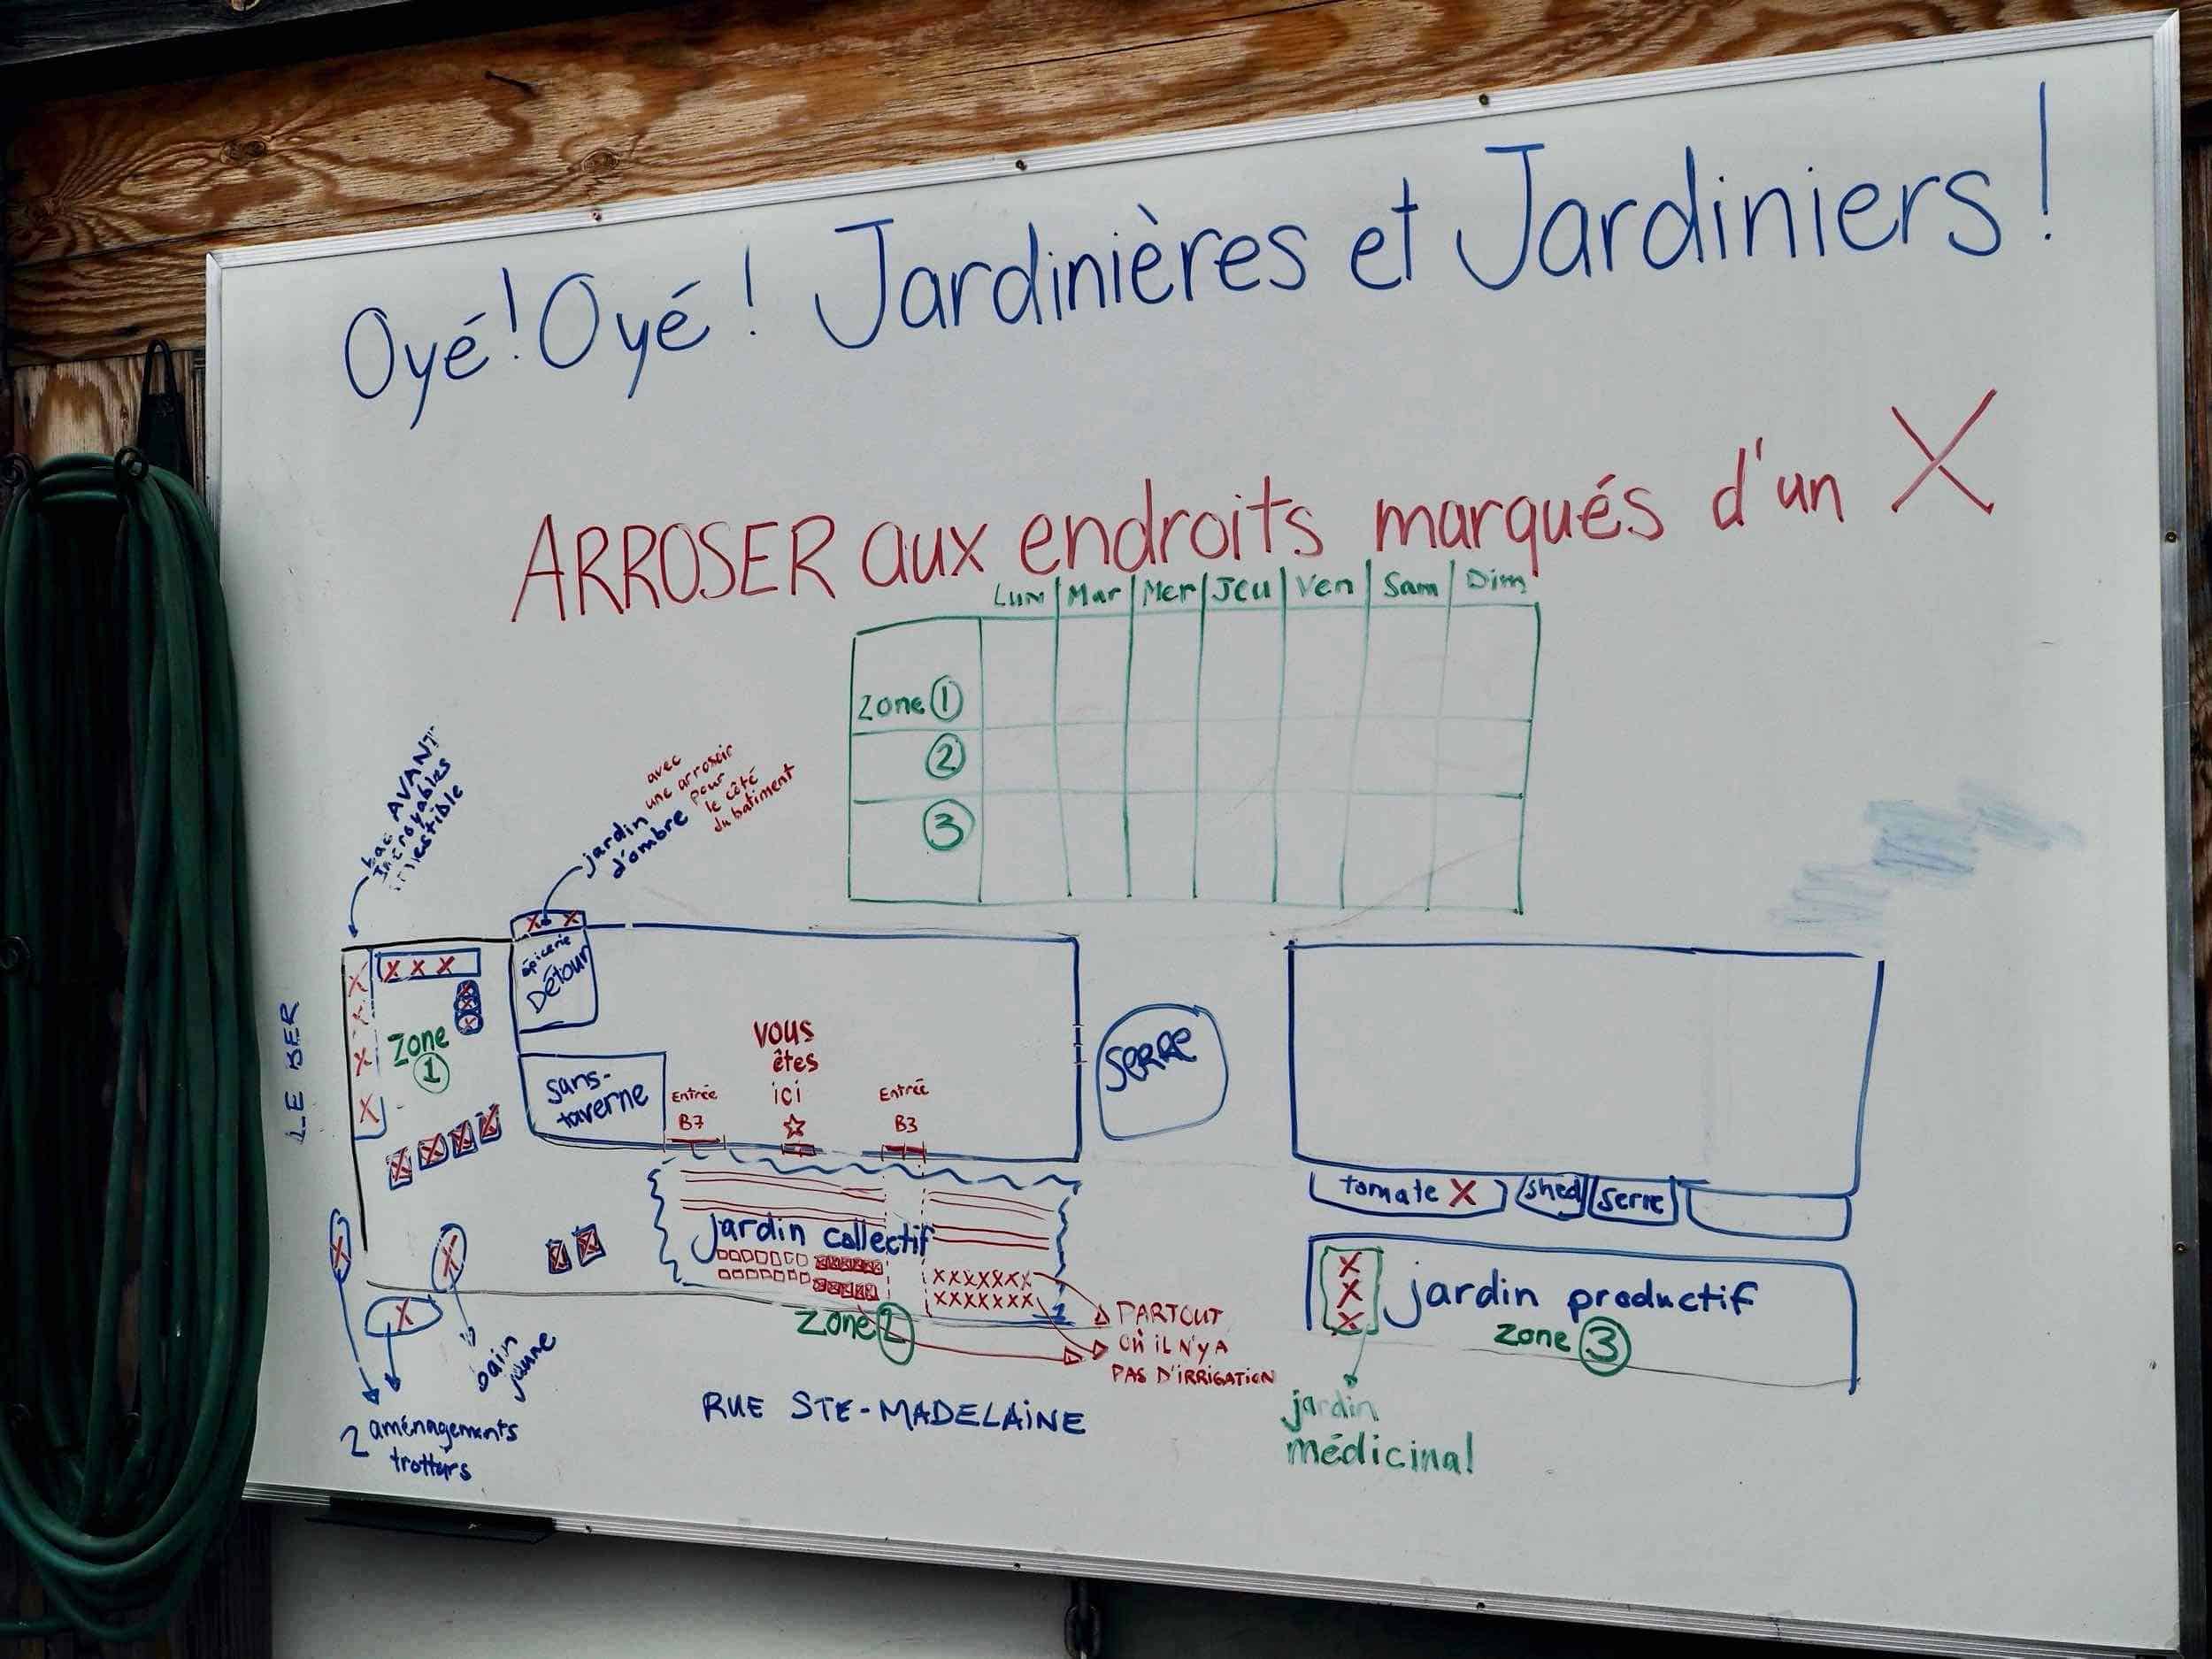 Oyé! Oyé! Jardinières et Jardiniers!
ARROSER aux endroits marqués d'un X
Lun Mar Mer Jeu Ven Sam Dim
Zone 1
2
3
bac AVANT
Incroyables
jardin
d'ombre
avec
une arrosoir
pour
le côté
du batiment
X X
épicerie
Détour
X X X
X
X
X
X
X
X
X
Zone
1
LE BER
sans-
taverne
Vous
êtes
ici
Entrée
B7
Entrée
B3
serre
X X X X
X X
X X
X
bain
jaune
2 aménagements
jardin collectif
XXXXXXX
XXXXXXX
Zone 2
PARTOUT
Où iL N'Y A
PAS D'IRRIGATION
RUE STE-MADELAiNE
tomate X
shed
serre
X
X
X
jardin productif
Zone 3
jardin
médicinal